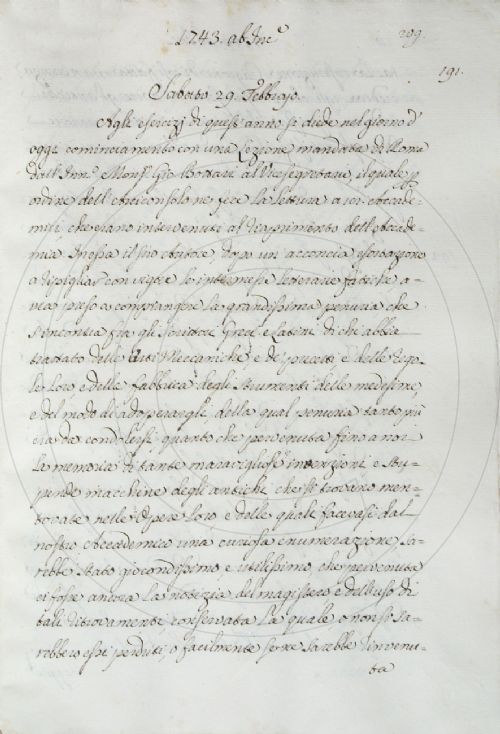 1743. ab Inc.e
209.
191.
Sabato 29. Febbrajo.
Agli esercizj di quest' anno si diede nel giorno d'
oggi cominciamento con una Lezione mandata di Roma
dall' Inn. Mons.r Gio Bottari al Vicesegretario, il quale p
ordine dell' Arciconsolo ne fece la lettura a 20. Accade=
mici, che erano intervenuti al Riaprimento dell' Accade=
mia. In essa il suo Autore, dopo un' acconcia esortazione
a ripigliar con vigore le intermesse letterarie fatiche a=
vea preso a compiangere la grandissima penuria che
s' incontra fra gli Scrittori Greci e Latini di chi abbia
trattato delle Arti Meccaniche, e de' precetti e delle rego=
le loro, e della fabbrica degli Strumenti delle medesime,
e del modo di adoperargli, della qual penuria tanto più
era da condolersi, quanto che pervenuta fino a noi
la memoria di tante maravigliose invenzioni e stu=
pende macchine degli antichi che si trovano men=
tovate nelle Opere loro e delle quali facevasi dal
nostro Accademico una curiosa enumerazione, sa=
rebbe stato giocondissimo e utilissimo, che pervenuta
ci fosse ancora la notizia del magistero e dell' uso di
tali ritrovamenti, conservata la quale, o non si sa=
rebbero essi perduti, o facilmente se ne sarebbe rinvenu=
ta